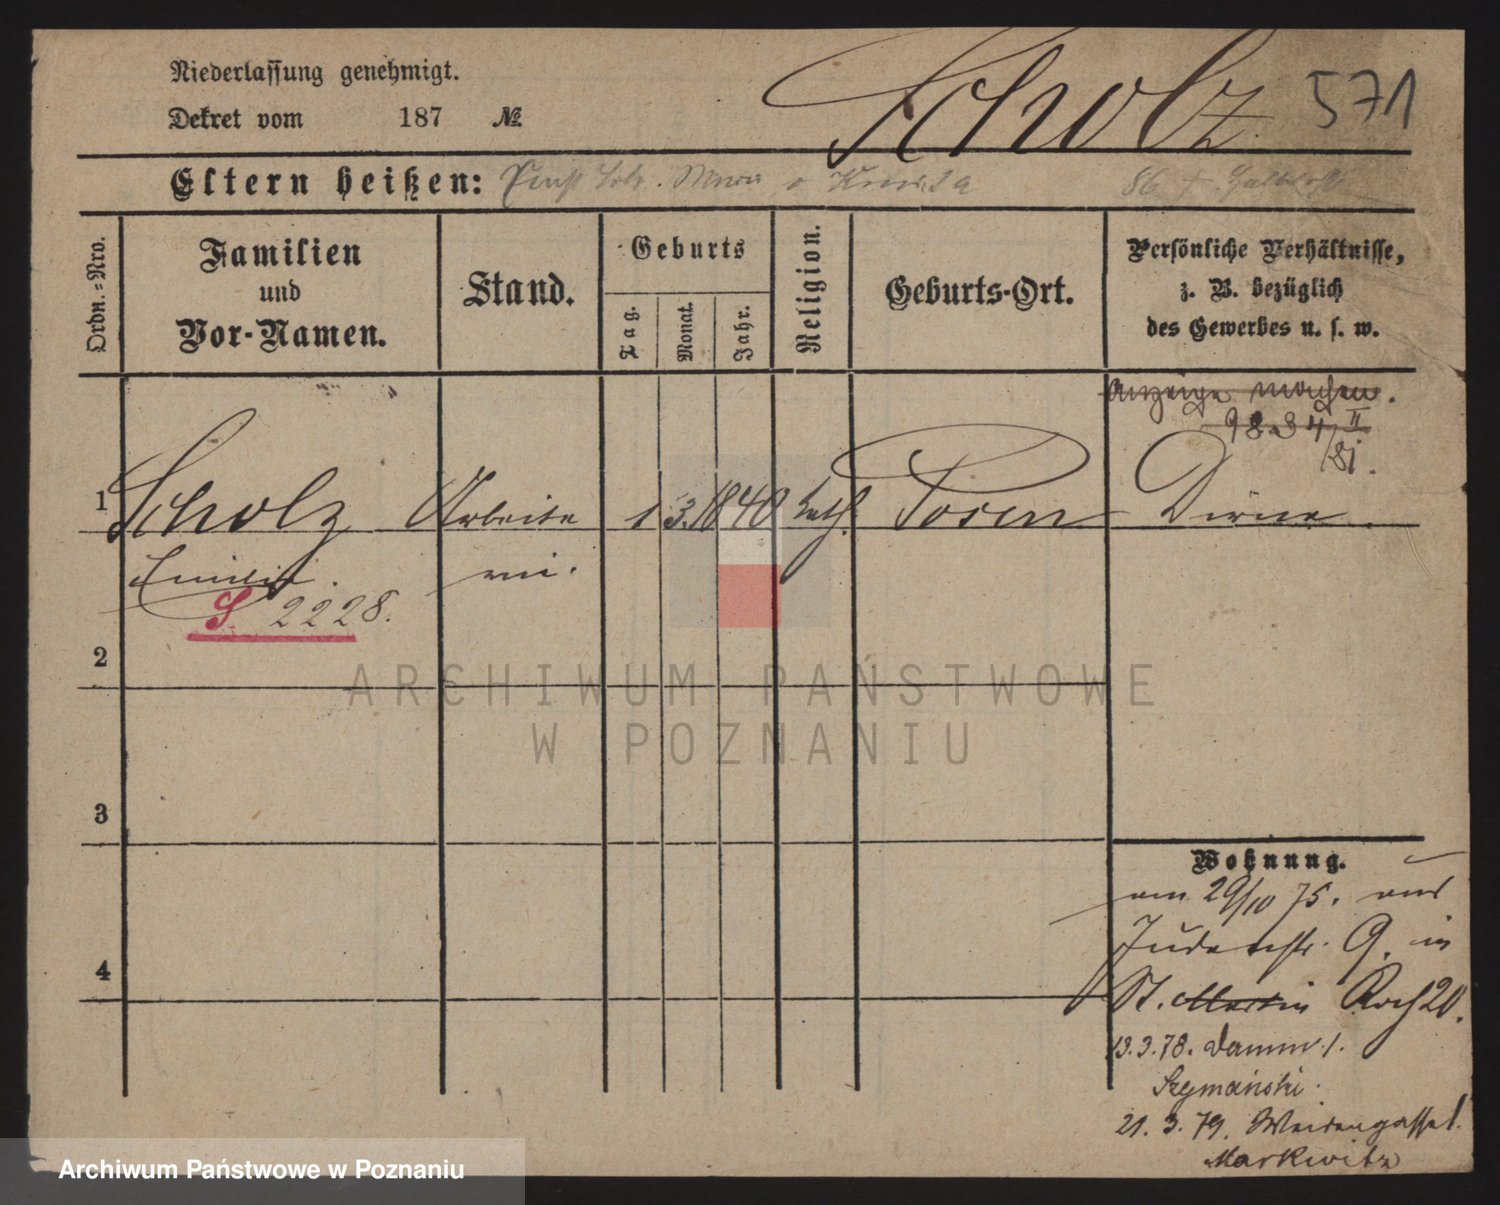 Niederlassung genehmigt.
Dekret vom 187 №
Scholz 571
Eltern heißen: Ernst
Ordn.=Nro.
Familien
und
Vor-Namen.
Stand.
Geburts
Tag.
Monat.
Jahr.
Religion.
Geburts-Ort.
Persönliche Verhältnisse,
z. B. bezüglich
des Gewerbes u. s. w.
Anzeige machen.
9834/II
81.
1 Scholz Arbeite 1 3. 1840 kath. Posen Dirne.
Emilie. rin.
S. 2228.
2
3
4
Wohnung.
am 29/10 75. aus
Judenstr. 9. in
St. Martin Roch 20.
13.3.78. Damm 1.
Szymański.
21. 3. 79. Weidengasse 1.
Markwitz
ARCHIWUM PAŃSTWOWE
W POZNANIU
Archiwum Państwowe w Poznaniu